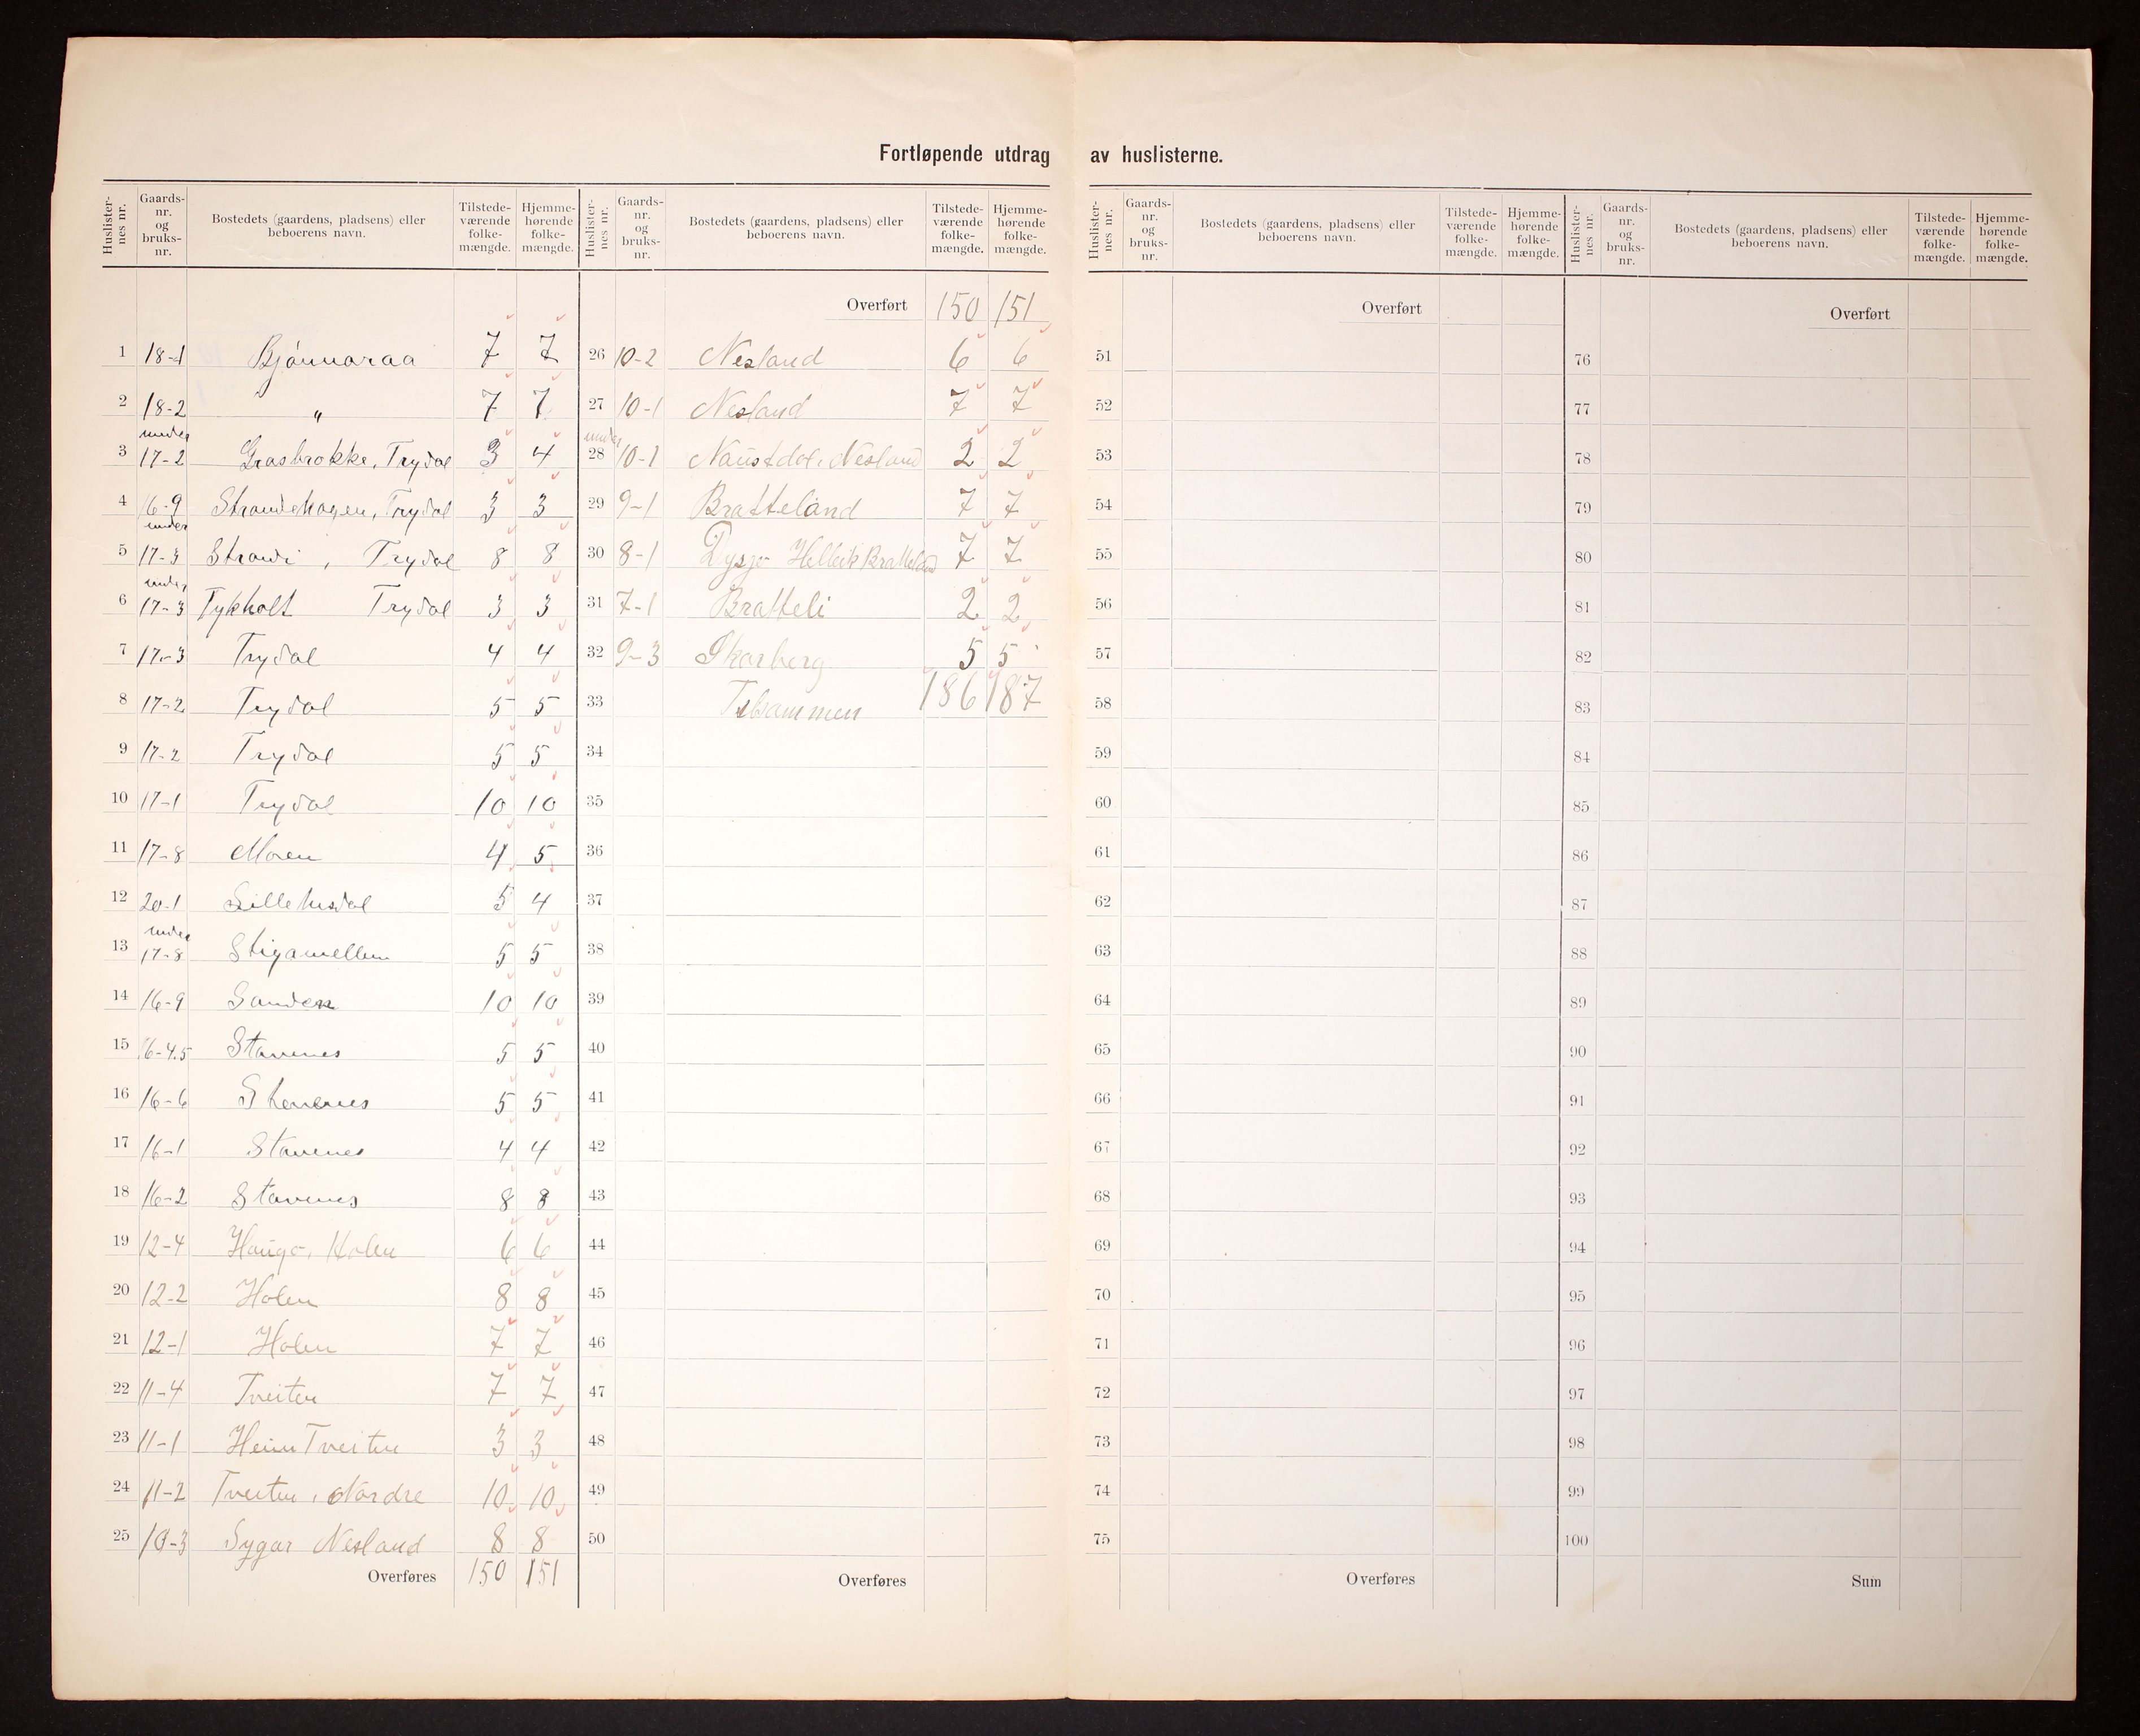 Fortløpende utdrag av huslisterne.
Huslisternes nr. Gaardsnr. og bruksnr. Bostedets (gaardens, pladsens) eller beboerens navn. Tilstedeværende folkemængde. Hjemmehørende folkemængde.
1 18-1 Bjønnaraa 7 7
2 18-2 " 7 7
3 under 17-2 Grasbrokke, Trydal 3 4
4 16-9 Strandehagen, Trydal 3 3
5 under 17-3 Strandi, Trydal 8 8
6 under 17-3 Tykholt Trydal 3 3
7 17-3 Trydal 4 4
8 17-2 Trydal 5 5
9 17-2 Trydal 5 5
10 17-1 Trydal 10 10
11 17-8 Moren 4 5
12 20-1 Lillehusdal 5 4
13 under 17-8 Stigamellem 5 5
14 16-9 Sanden 10 10
15 16-4.5 Stavenes 5 5
16 16-6 Stavenes 5 5
17 16-1 Stavenes 4 4
18 16-2 Stavenes 8 8
19 12-4 Haugo, Holen 6 6
20 12-2 Holen 8 8
21 12-1 Holen 7 7
22 11-4 Tveiten 7 7
23 11-1 Heim Tveiten 3 3
24 11-2 Tveiten, Nordre 10 10
25 10-3 Sygar Nesland 8 8
Overføres 150 151
Huslisternes nr. Gaardsnr. og bruksnr. Bostedets (gaardens, pladsens) eller beboerens navn. Tilstedeværende folkemængde. Hjemmehørende folkemængde.
Overført 150 151
26 10-2 Nesland 6 6
27 10-1 Nesland 7 7
28 under 10-1 Naustdal, Nesland 2 2
29 9-1 Bratteland 7 7
30 8-1 Helleik Bratteland 7 7
31 7-1 Bratteli 2 2
32 9-3 Skarberg 5 5
33 Tilsammen 186 187
34
35
36
37
38
39
40
41
42
43
44
45
46
47
48
49
50
Overføres
Huslisternes nr. Gaardsnr. og bruksnr. Bostedets (gaardens, pladsens) eller beboerens navn. Tilstedeværende folkemængde. Hjemmehørende folkemængde.
Overført
51
52
53
54
55
56
57
58
59
60
61
62
63
64
65
66
67
68
69
70
71
72
73
74
75
Overføres
Huslisternes nr. Gaardsnr. og bruksnr. Bostedets (gaardens, pladsens) eller beboerens navn. Tilstedeværende folkemængde. Hjemmehørende folkemængde.
Overført
76
77
78
79
80
81
82
83
84
85
86
87
88
89
90
91
92
93
94
95
96
97
98
99
100
Sum